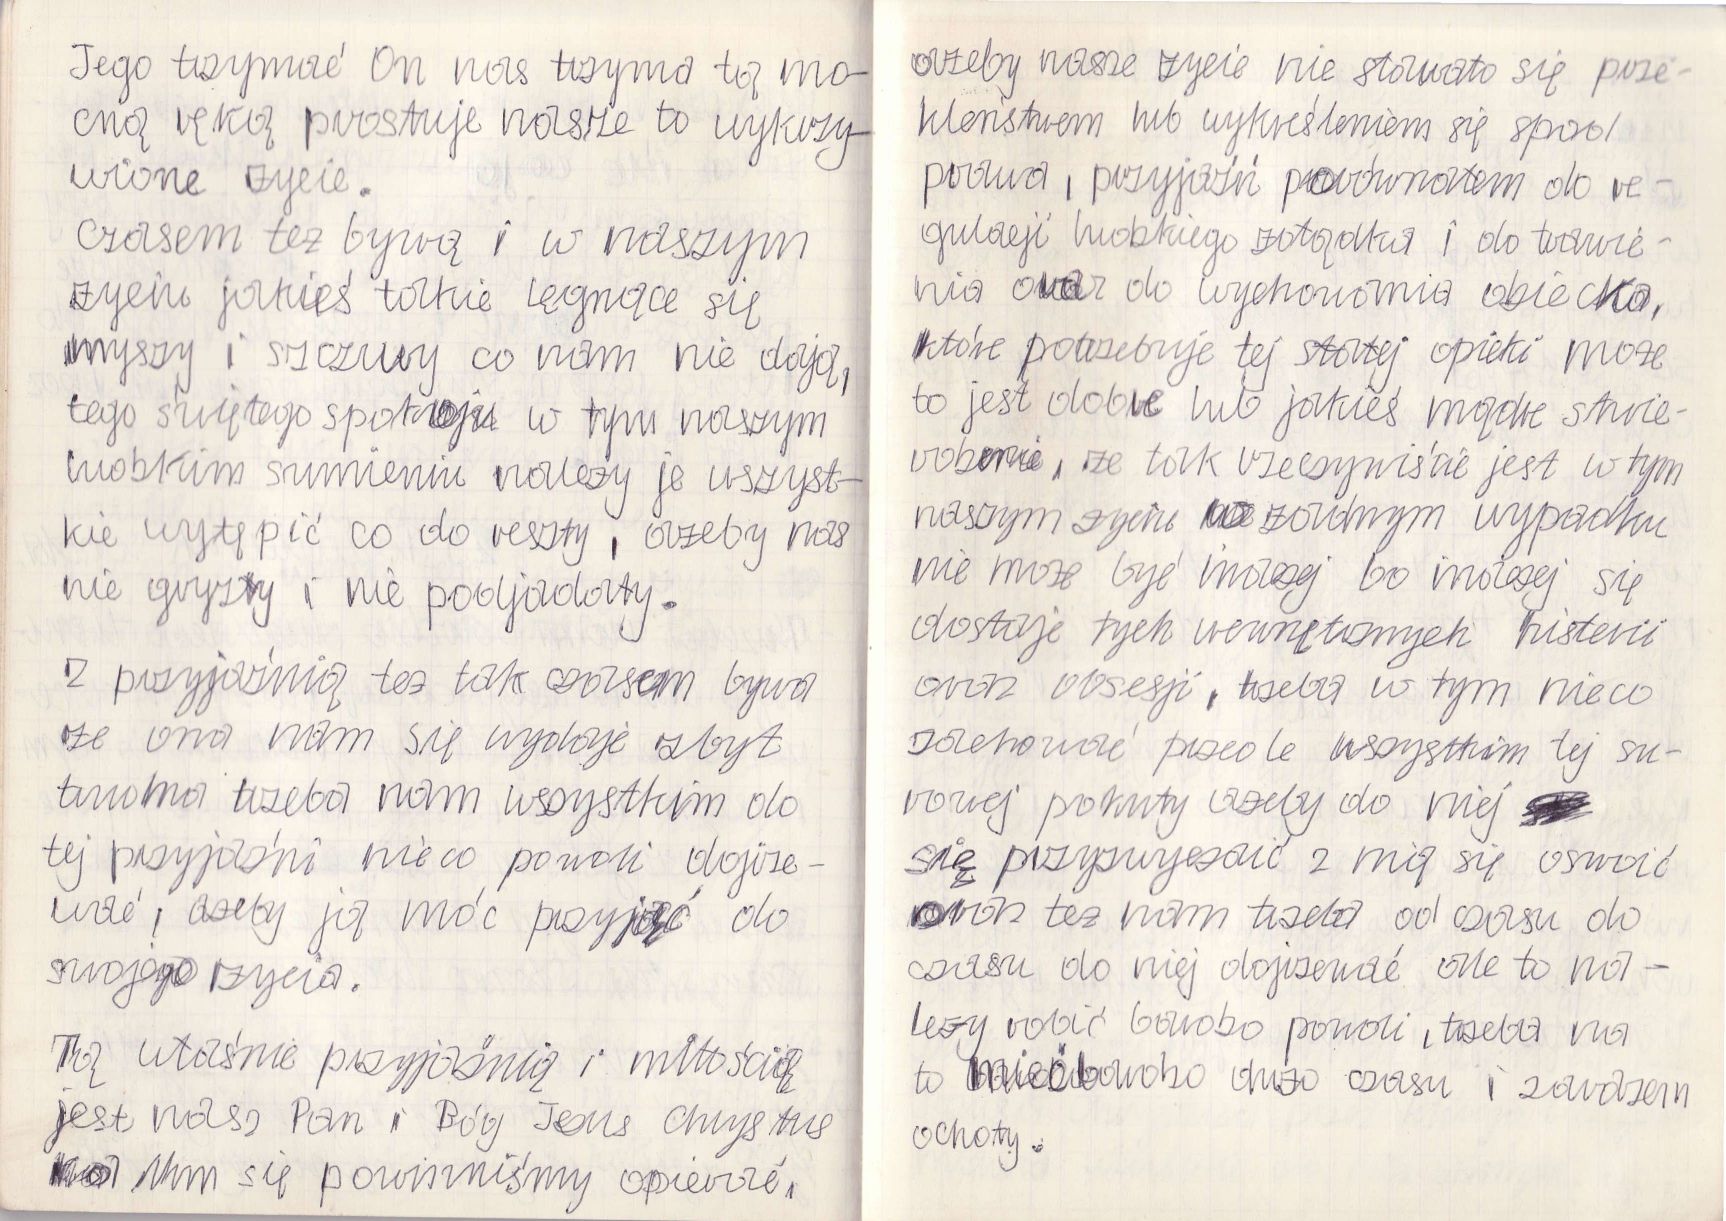 Jego trzymać On nas trzyma tą mo-
cną ręką prostuje nasze to wykrzy-
wione życie.
Czasem też bywą i w naszym
życiu jakieś takie lęgnące się
myszy i szczury co nam nie dają,
tego świętego spokoju w tym naszym
ludzkim sumieniu należy je wszyst-
kie wytępić co do reszty, ażeby nas
nie gryzły i nie podjadały.
Z przyjaźnią też tak czasem bywa
że ona nam się wydaje zbyt
trudna trzeba nam wszystkim do
tej przyjaźni nieco powoli dojrze-
wać, ażeby ją móc przyjąć do
swojego życia.
Tą właśnie przyjaźnią i miłością
jest nasz Pan i Bóg Jezus Chrystus
na Nim się powinniśmy opierać,
ażeby nasze życie nie stawało się prze-
kleństwem lub wykreśleniem się spod
prawa, przyjaźń porównałem do re-
gulacji ludzkiego żołądka i do trawie-
nia oraz do wychowania dziecka,
które potrzebuje tej stałej opieki może
to jest dobre lub jakieś mądre stwie-
rdzenie, że tak rzeczywiście jest w tym
naszym życiu w żadnym wypadku
nie może być inaczej bo inaczej się
dostaje tych wewnętrznych histerii
oraz obsesji, trzeba w tym nieco
zachować przede wszystkim tej su-
rowej pokuty ażeby do niej
się przyzwyczaić z nią się oswoić
oraz też nam trzeba od czasu do
czasu do niej dojrzewać ale to na-
leży robić bardzo powoli, trzeba na
to mieć bardzo dużo czasu i zarazem
ochoty.